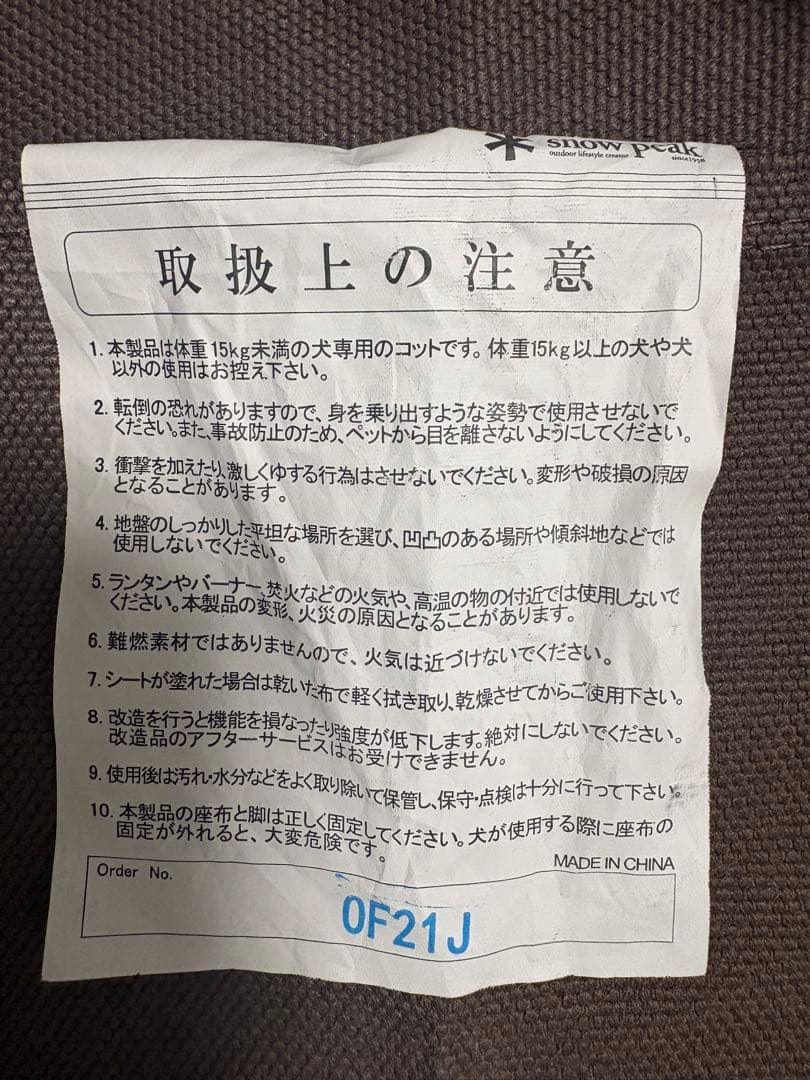 snow peak
outdoor lifestyle creator
since1958
取扱上の注意
1. 本製品は体重15kg未満の犬専用のコットです。体重15kg以上の犬や犬
以外の使用はお控え下さい。
2. 転倒の恐れがありますので、身を乗り出すような姿勢で使用させないで
ください。また、事故防止のため、ペットから目を離さないようにしてください。
3. 衝撃を加えたり、激しくゆする行為はさせないでください。変形や破損の原因
となることがあります。
4. 地盤のしっかりした平坦な場所を選び、凹凸のある場所や傾斜地などでは
使用しないでください。
5. ランタンやバーナー、焚火などの火気や、高温の物の付近では使用しないで
ください。本製品の変形、火災の原因となることがあります。
6. 難燃素材ではありませんので、火気は近づけないでください。
7. シートが塗れた場合は乾いた布で軽く拭き取り、乾燥させてからご使用下さい。
8. 改造を行うと機能を損なったり強度が低下します。絶対にしないでください。
改造品のアフターサービスはお受けできません。
9. 使用後は汚れ・水分などをよく取り除いて保管し、保守・点検は十分に行って下さい。
10. 本製品の座布と脚は正しく固定してください。犬が使用する際に座布の
固定が外れると、大変危険です。
MADE IN CHINA
Order No.
OF21J